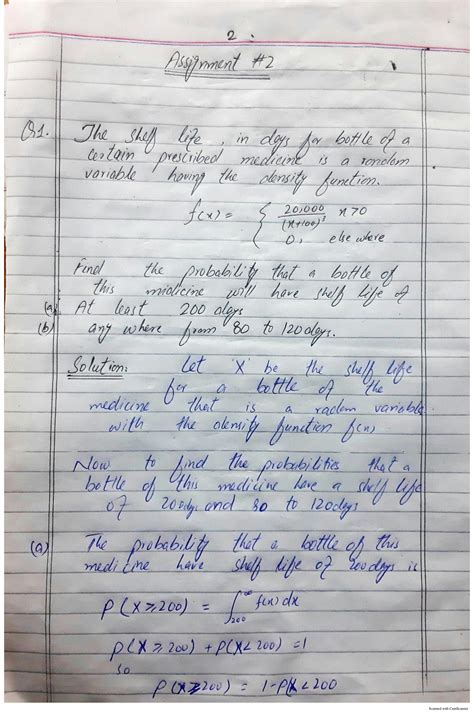 2.
Assignment #2
Q1. The shelf life, in days for bottle of a
certain prescribed medicine is a random
variable having the density function.
f(x) = { 20,000 / (x+100)³ x>0
0, else where
Find the probability that a bottle of
this midicine will have shelf life of
(a) At least 200 days
(b) any where from 80 to 120 days.
Solution: Let 'X' be the shelf life
for a bottle of the
medicine that is a radom variable
with the density function f(x)
Now to find the probabilities that a
bottle of this medicine have a shelf life
of 200 days and 80 to 120 days
(a) The probability that a bottle of this
medicine have shelf life of 200 days is
P(X ≥ 200) = ∫₂₀₀^∞ f(x) dx
P(X ≥ 200) + P(X < 200) = 1
so
P(X ≥ 200) = 1 - P(X < 200
Scanned with CamScanner